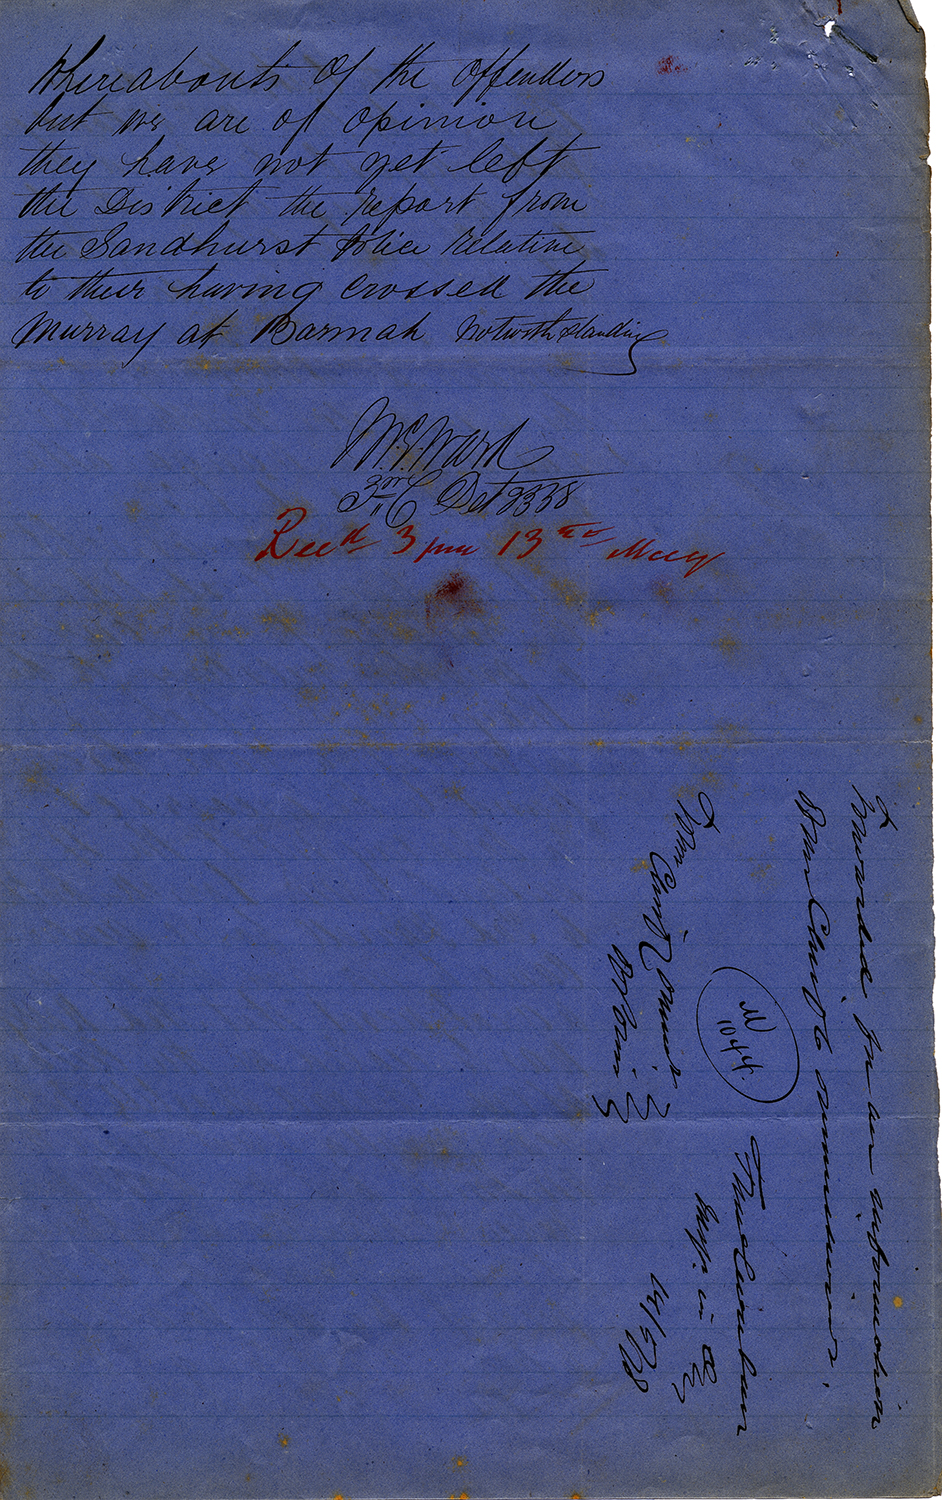 whereabouts of the offenders
but we are of opinion
they have not yet left
the District the report from
the Sandhurst Police relative
to their having crossed the
Murray at Barmah notwithstanding
M. E. Ward
3rd C Det 2338
Recd 3 pm 13th May
Forwarded for information
Chief Commissioner
The Chief Commr
M
1044
Insp. in